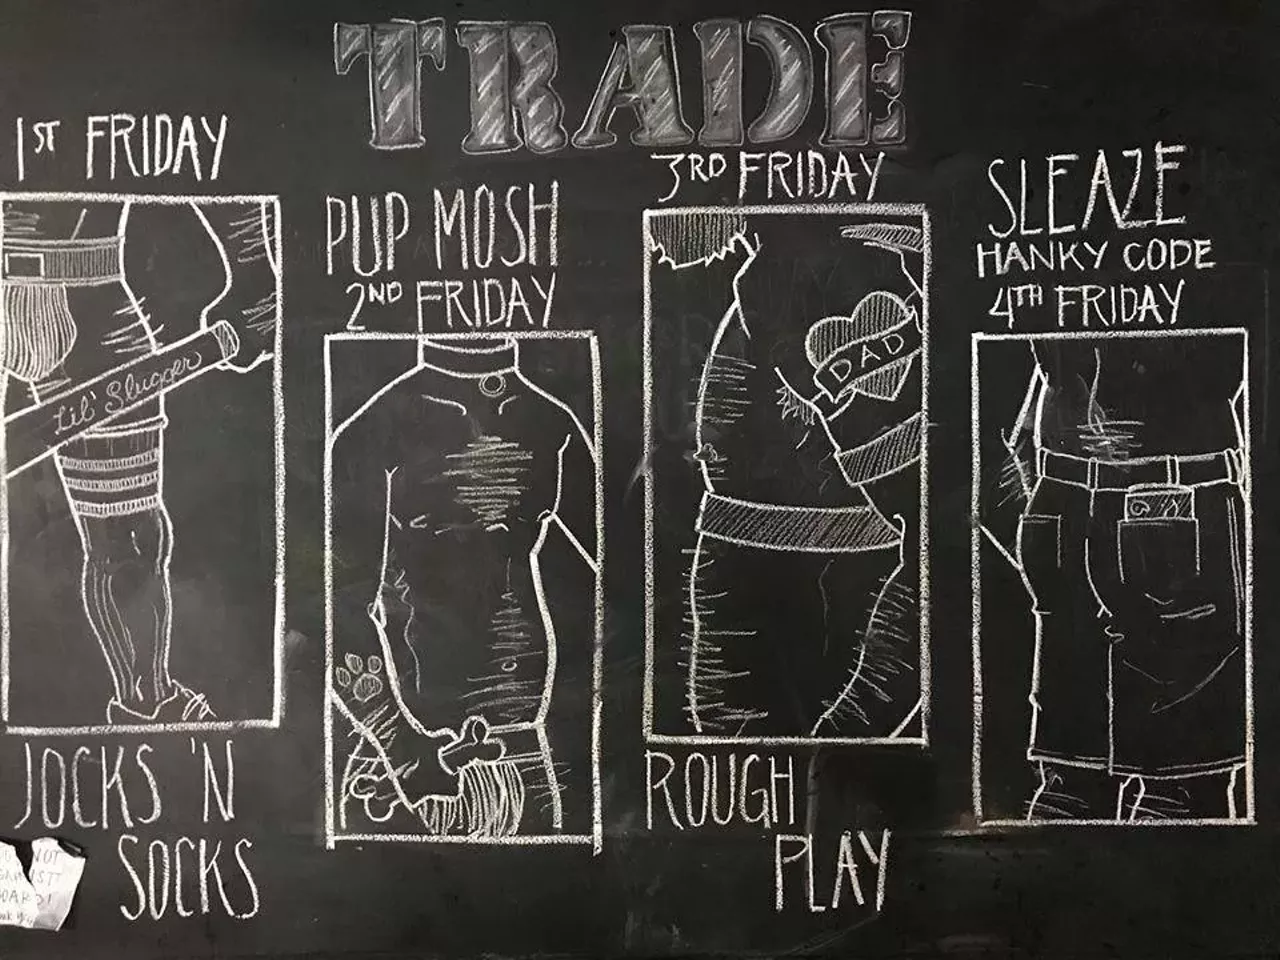 TRADE
1ST FRIDAY
Lil' Slugger
JOCKS 'N
SOCKS
PUP MOSH
2ND FRIDAY
3RD FRIDAY
DAD
ROUGH
PLAY
SLEAZE
HANKY CODE
4TH FRIDAY
NOT